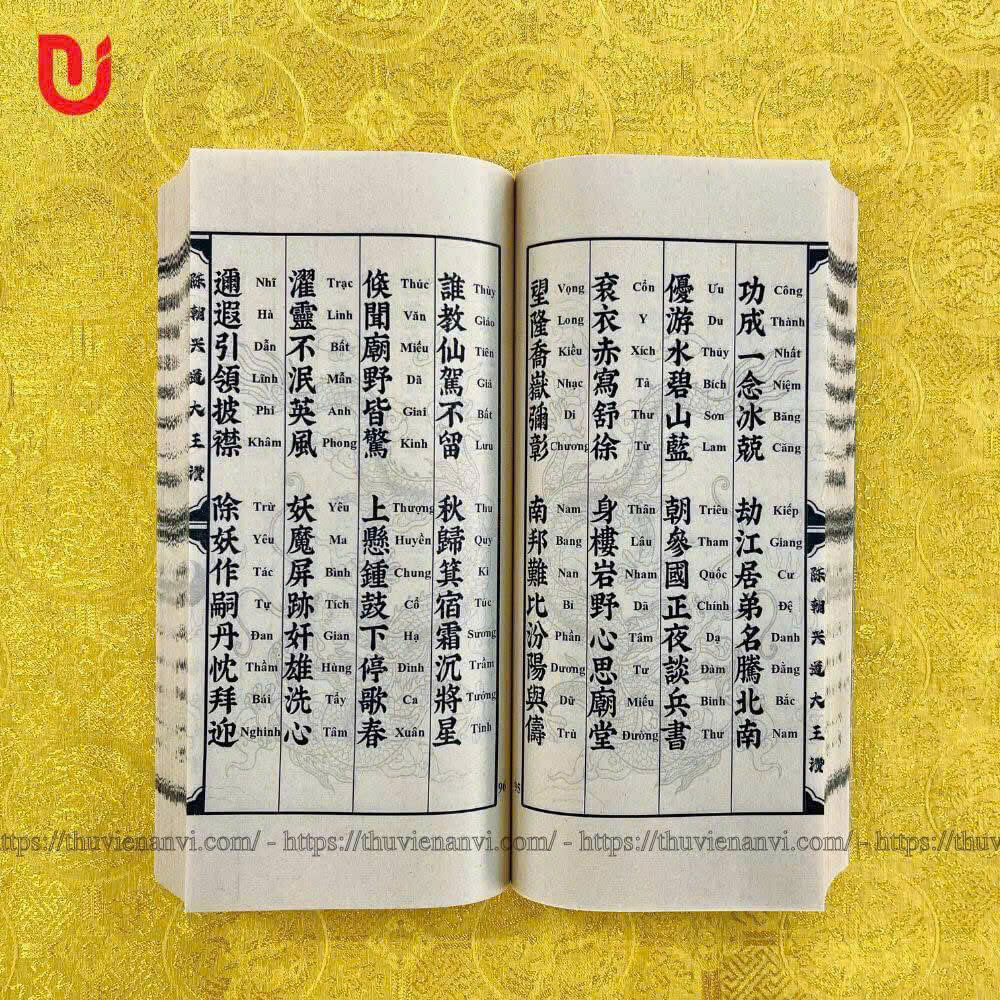 陳朝兴道大王讚
功成一念冰兢 劫江居弟名騰北南
Công Thành Nhất Niệm Băng Căng Kiếp Giang Cư Đệ Danh Đằng Bắc Nam
優游水碧山藍 朝參國正夜談兵書
Ưu Du Thủy Bích Sơn Lam Triêu Tham Quốc Chính Dạ Đàm Binh Thư
袞衣赤寫舒徐 身樓岩野心思廟堂
Cổn Y Xích Tả Thư Từ Thân Lâu Nham Dã Tâm Tư Miếu Đường
望隆喬嶽彌彰 南邦難比汾陽與儔
Vọng Long Kiều Nhạc Di Chương Nam Bang Nan Bỉ Phần Dương Dữ Trù
95
誰教仙駕不留 秋歸箕宿霜沉將星
Thùy Giáo Tiên Giá Bất Lưu Thu Quy Ki Túc Sương Trầm Tướng Tinh
倏聞廟野皆驚 上懸鍾鼓下停歌春
Thúc Văn Miếu Dã Giai Kinh Thượng Huyền Chung Cổ Hạ Đình Ca Xuân
濯靈不泯英風 妖魔屏跡奸雄洗心
Trạc Linh Bất Mẫn Anh Phong Yêu Ma Bình Tích Gian Hùng Tẩy Tâm
邇遐引領披襟 除妖作嗣丹忱拜迎
Nhĩ Hà Dẫn Lĩnh Phi Khâm Trừ Yêu Tác Tự Đan Thầm Bái Nghinh
陳朝兴道大王讚
96
https://thuvienanvi.com/ - https://thuvienanvi.com/ - https://thuvienanvi.com/ - https://thuvienanvi.com/